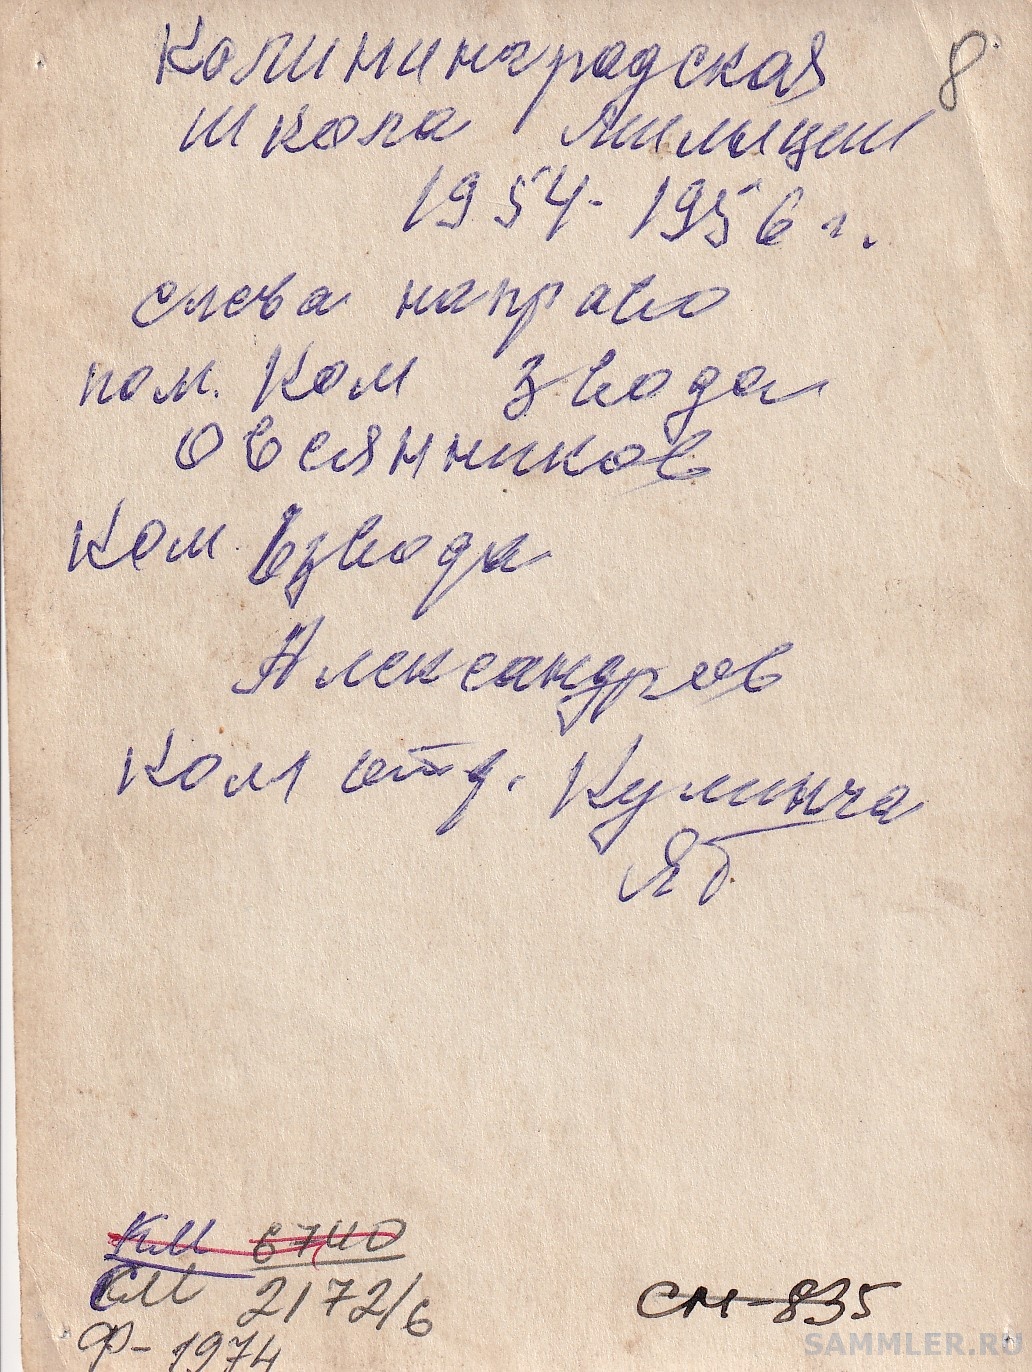 8
Калининградская
школа милиции
1954-1956 г.
слева направо
пом. Ком звода
Овсянников
Ком. взвода
Александров
Ком отд. Кулинча
ЯБ
КМ 6740
СМ 2172/6
Ф-1974
СМ-835
SAMMLER.RU